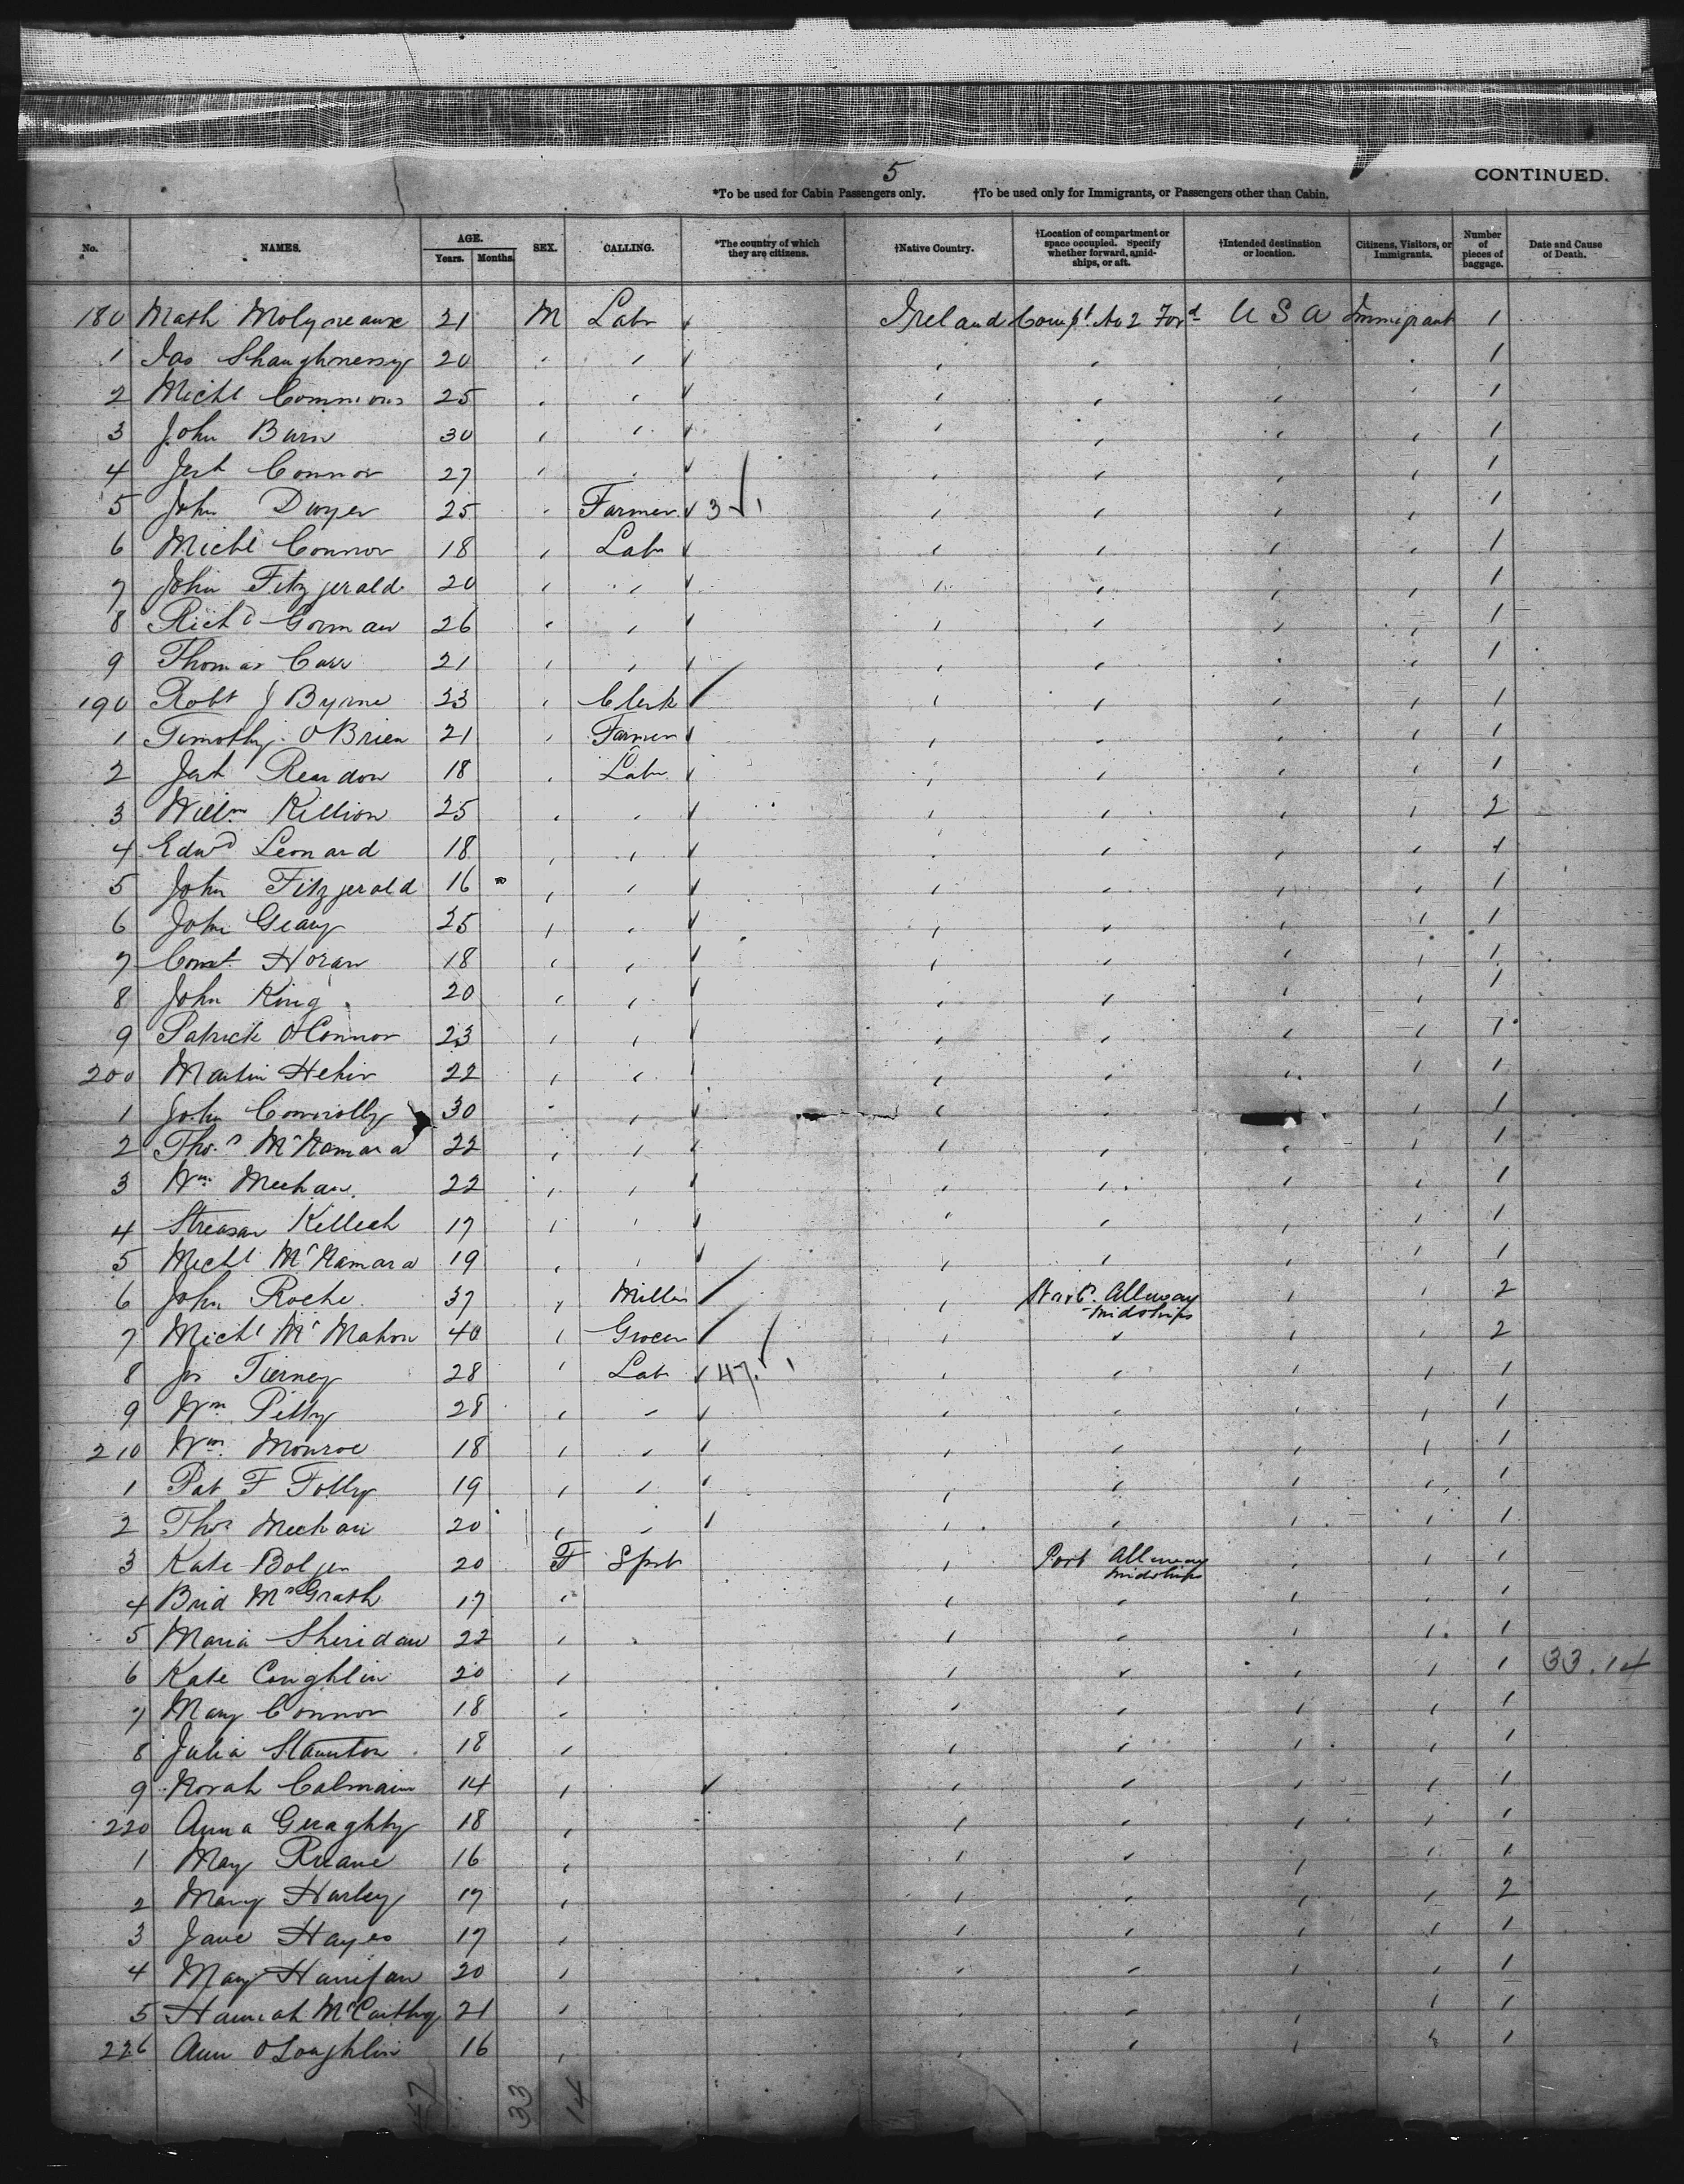 5
CONTINUED.
*To be used for Cabin Passengers only. †To be used only for Immigrants, or Passengers other than Cabin.
No. NAMES. AGE. Years. Months. SEX. CALLING. *The country of which they are citizens. †Native Country. †Location of compartment or space occupied. Specify whether forward, amidships, or aft. †Intended destination or location. Citizens, Visitors, or Immigrants. Number of pieces of baggage. Date and Cause of Death.
180 Math Molyneaux 21 M Labr Ireland Compt No 2 Ford U S A Immigrant 1
1 Jas Shaughnessy 20 1
2 Michl Commons 25 1
3 John Burn 30 1
4 Jert Connor 27 1
5 John Dwyer 25 Farmer 3 1
6 Michl Connor 18 Labr 1
7 John Fitzgerald 20 1
8 Richd Gorman 26 1
9 Thomas Carr 21 1
190 Robt J Byrne 23 Clerk 1
1 Timothy O'Brien 21 Farmer 1
2 Jert Reardon 18 Labr 1
3 Willm Killion 25 2
4 Edwd Leonard 18 1
5 John Fitzgerald 16 1
6 John Geary 25 1
7 Const Horan 18 1
8 John King 20 1
9 Patrick O'Connor 23 1
200 Martin Hehir 22 1
1 John Connolly 30 1
2 Thos McNamara 22 1
3 Wm Meehan 22 1
4 Killeah 17 1
5 Michl McNamara 19 1
6 John Roche 37 Miller Starb. Allway midships 2
7 Michl McMahon 40 Grocer 2
8 Js Tierney 28 Labr 47 1
9 Wm Petty 28 1
210 Wm Monroe 18 1
1 Pat F Folly 19 1
2 Thos Meehan 20 1
3 Kate Bolger 20 F Spst Port Allway midships 1
4 Brid McGrath 17 1
5 Maria Sheridan 22 1
6 Kate Coughlin 20 1 33.14
7 Mary Connor 18 1
8 Julia Staunton 18 1
9 Norah Calmain 14 1
220 Anna Geraghty 18 1
1 May Ruane 16 1
2 Mary Hurley 17 2
3 Jane Hayes 17 1
4 Mary Hanifan 20 1
5 Hannah McCarthy 21 1
226 Ann O'Loughlin 16 1
47 33 14